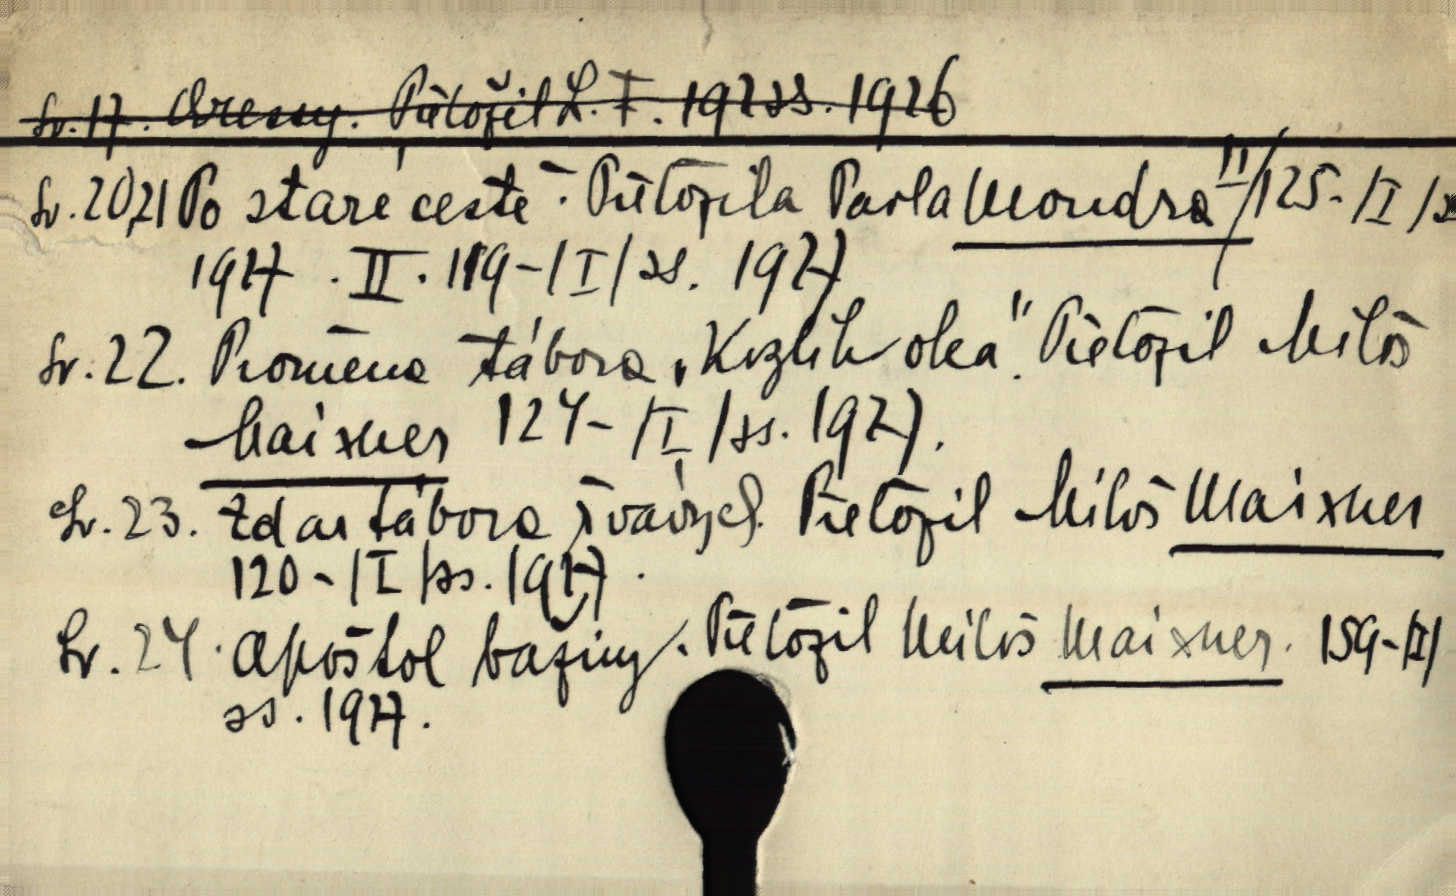 Sv. 17. Přeložil L. F. 192 ss. 1926
Sv. 20/21 Po staré cestě. Přeložila Pavla Moudrá II/125-/I/ss
1927. II. 119-/I/ss. 1927
Sv. 22. Proměna tábora „Kozlík oka". Přeložil Miloš
Maixner 124-/I/ss. 1927.
Sv. 23. Zdar tábora řvavých. Přeložil Miloš Maixner
120-/I/ss. 1927.
Sv. 24. Apoštol bažiny. Přeložil Miloš Maixner. 159-/I/
ss. 1927.